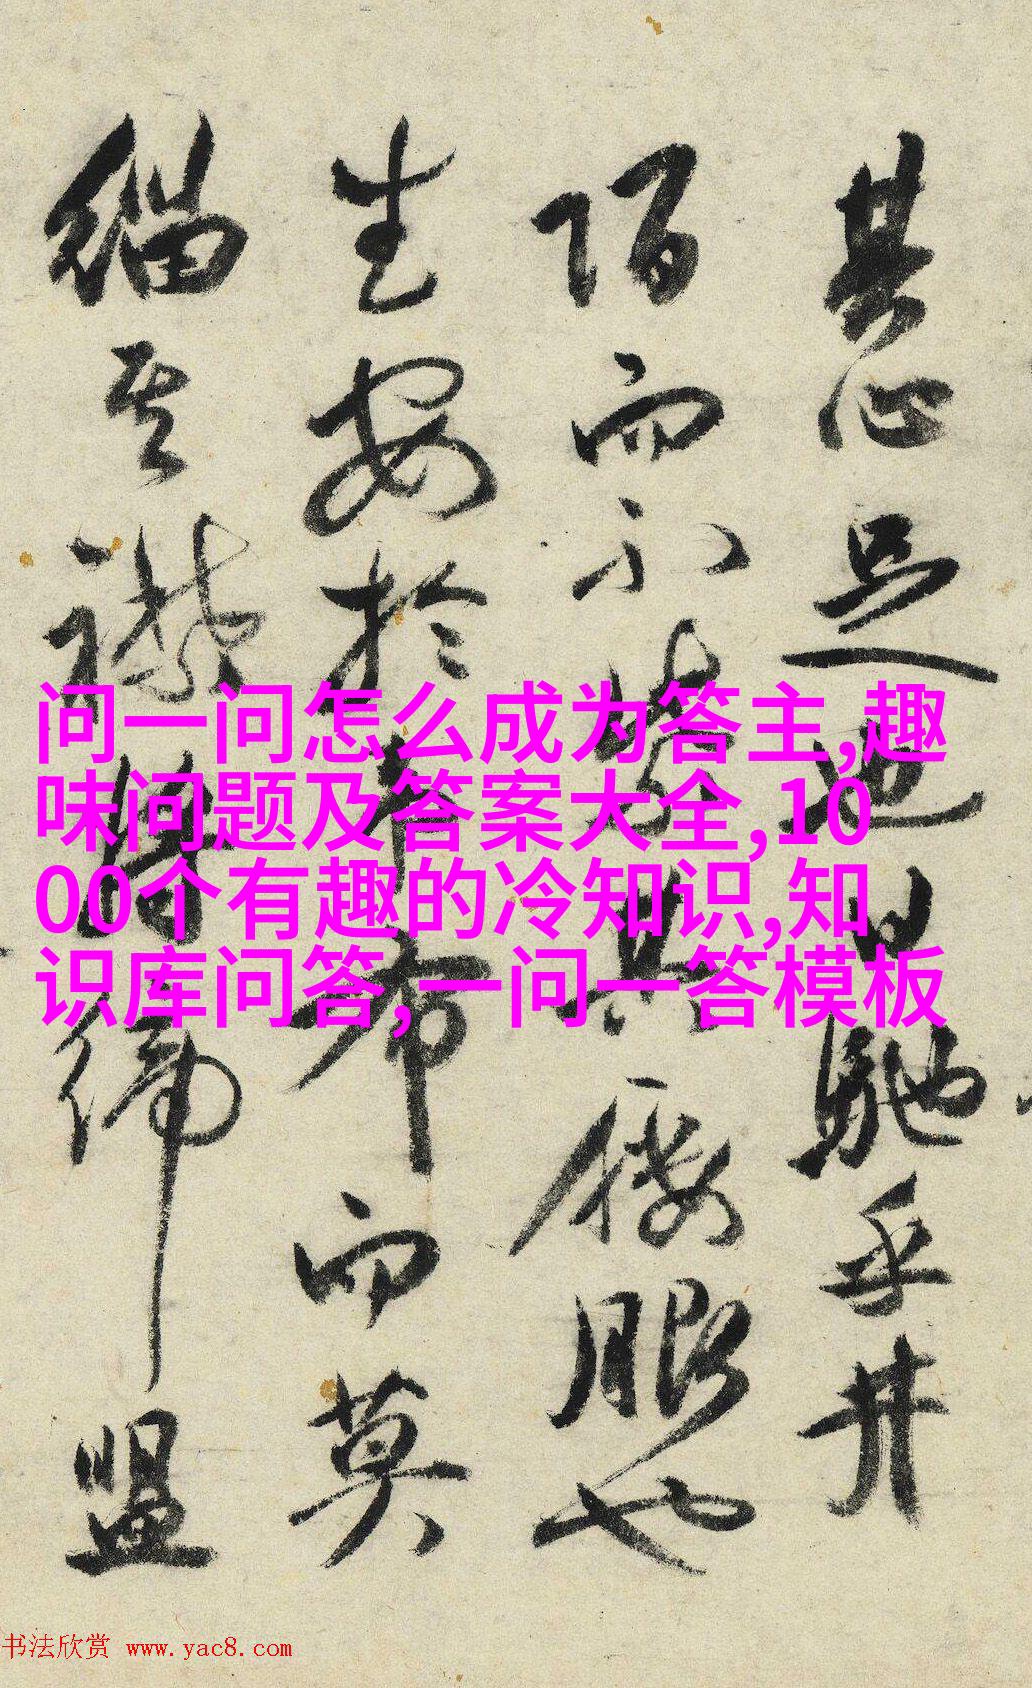 其心足迹日馳乎井
陌而不其服也
生安於布而莫
緇其襟將締盟
问一问怎么成为答主,趣
味问题及答案大全,10
00个有趣的冷知识,知
识库问答,一问一答模板
书法欣赏 www.yac8.com